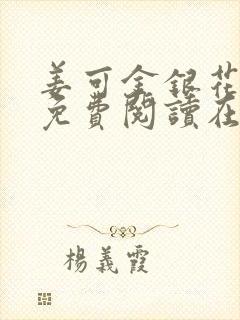 姜可金銀花
免費閱讀在
楊義霞